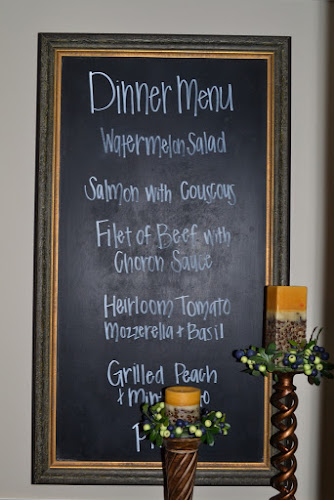 Dinner Menu
Watermelon Salad
Salmon with Couscous
Filet of Beef with
Choron Sauce
Heirloom Tomato
Mozzerella + Basil
Grilled Peach
+ Mint